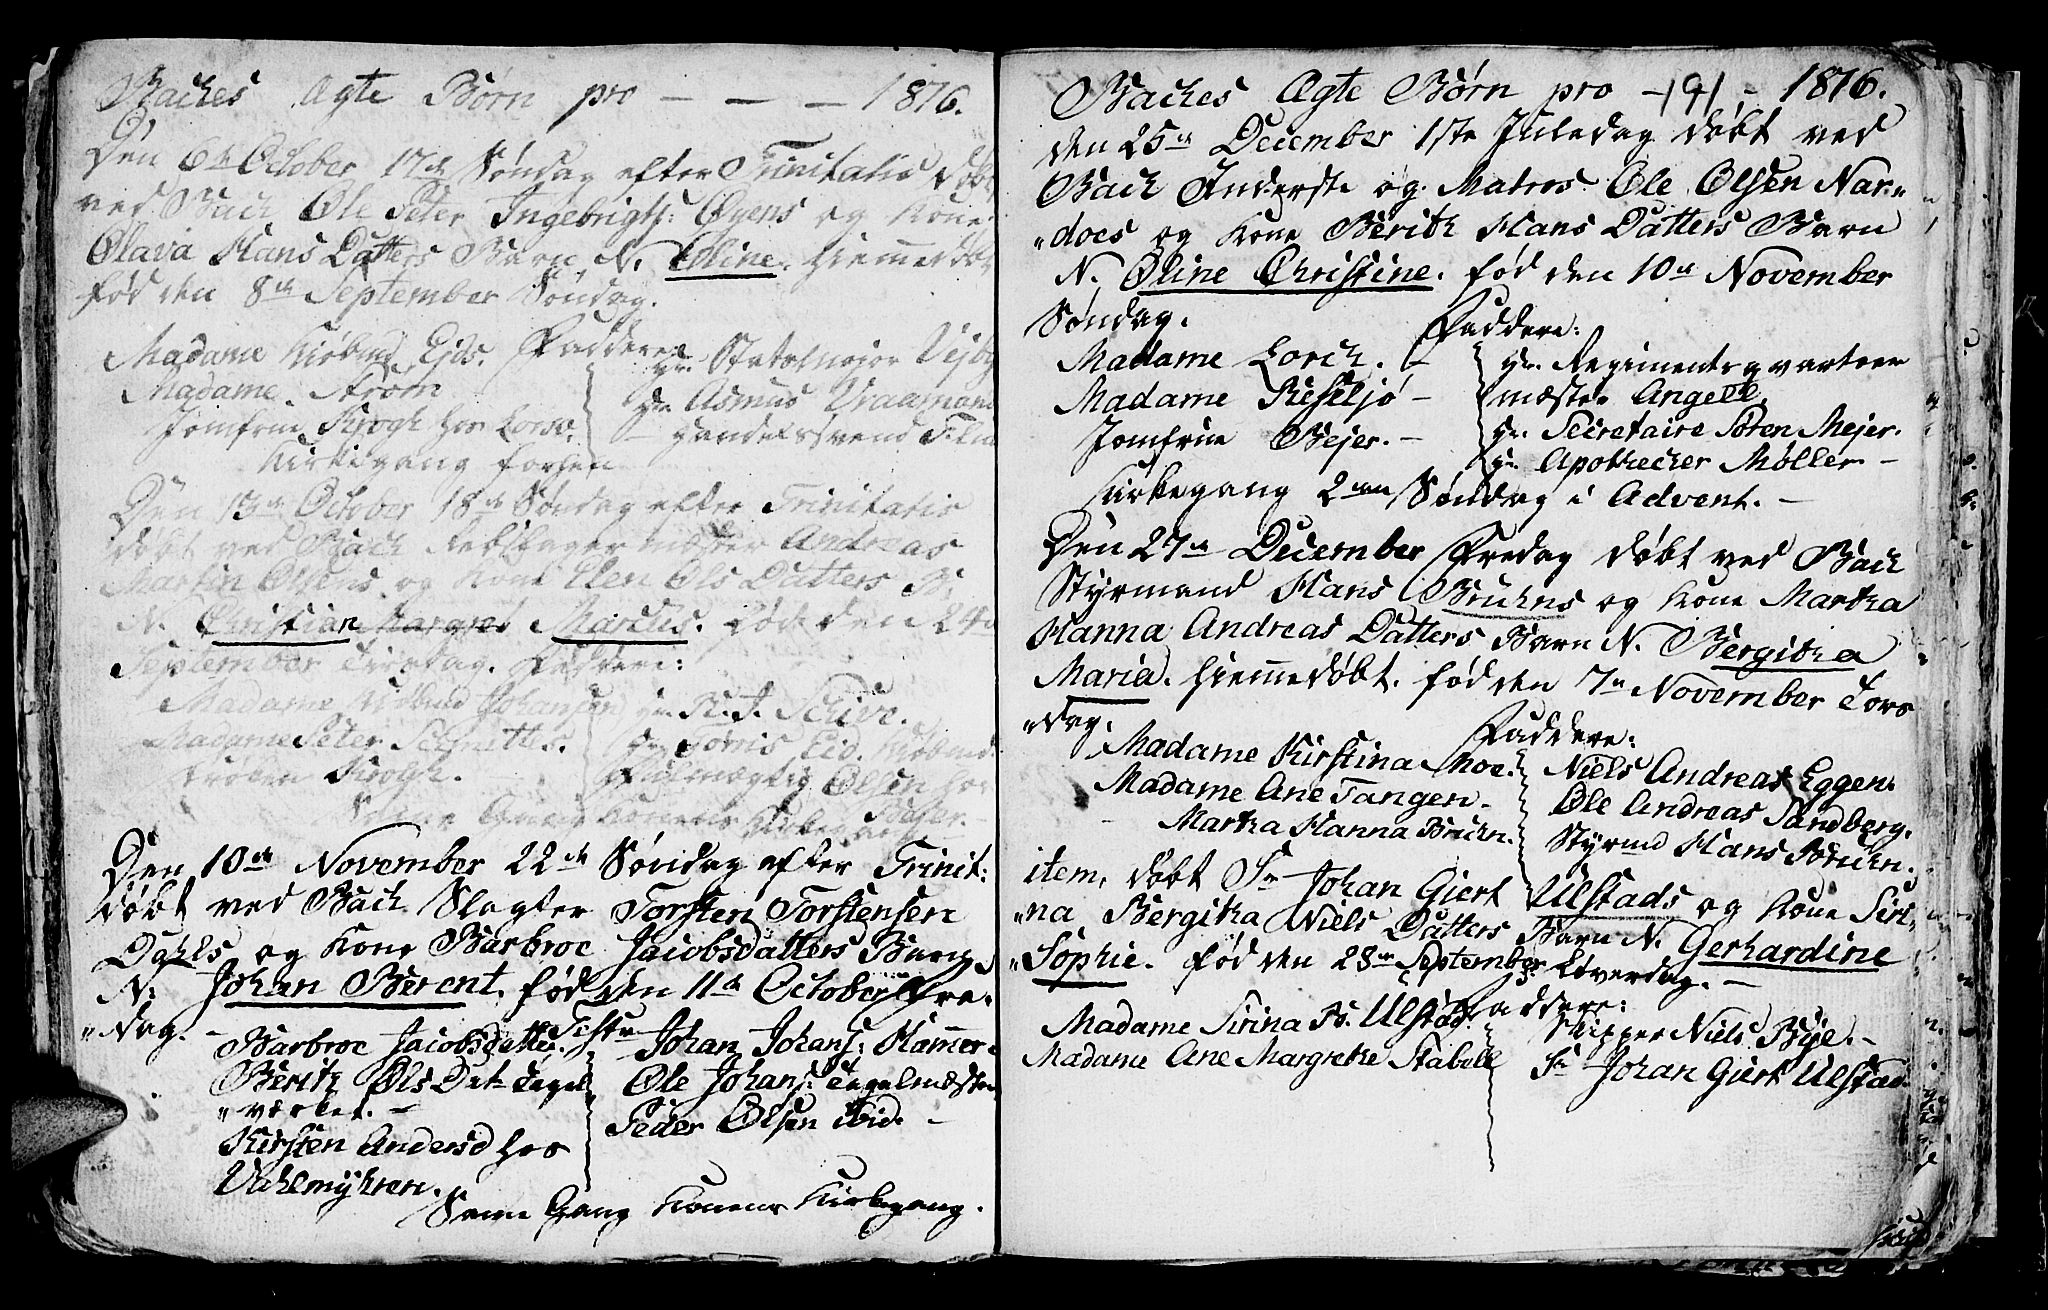 Baches Ægte Børn pro — — — 1816.
Den 6te October 17de Søndag efter Trinitatis døbt
ved Bach Ole Peter Ingebrigts: Øyens og Kone
Olava Hans Datters Barn N. Oline. Hiemmedøbt
fød den 8de September Søndag.
Faddere
Madame Kiøbmd Eids.
Madame Strøm
Jomfrue Krogh hos Lorck.
Hr. Statsmajor Vejby
Hr Asmus Vraamann
Handelsvend
Kirkegang forhen
Den 13de October 18de Søndag efter Trinitatis
døbt ved Bach Rebslagermester Andreas
Martin Olsens og Kone Elen Ols Datters B:
N. Christian Margret Marcus. fød den 24de
September Tirsdag. Faddere:
Madame Kiøbmd Johansen
Madame Peter Schmettes.
Frøken Krogh.
Hr. R. F. Schive.
Hr Tørris Eid. Kiøbmd:
Fuldmægtig Olsen hos
Bejer.
Samme Gang Konens Kirkegang
Den 10de November 22de Søndag efter Trinit:
døbt ved Bach Slagter Torsten Torstensen
Dahls og Kone Barbroe Jacobsdatters Barn
N. Johan Berent. fød den 11de October Fre-
"dag. —
Test:
Barbroe Jacobsdatter.
Berith Ols Dat- Tegel
"værket. —
Kirsten Andersd hos
Uchlmyhren.
Johan Johans: Hammer
Ole Johans: Tegelmester
Peder Olsen ibid. —
Samme Gang Konens Kirkegang.
Baches Ægte Børn pro -191- 1816.
den 25de December 1ste Juledag døbt ved
Bach Inderste og Matros Ole Olsen Nar-
"does og Kone Berith Hans Datters Barn
N. Oline Christine. fød den 10de November
Søndag.
Faddere:
Madame Lorck. —
Madame Riskljø —
Jomfrue Bejer. —
Hr. Regimentsqvarteer
mester Angell
Hr. Secretaire Søren Mejer.
Hr. Apothecker Møller —
Kirkegang 2den Søndag i Advent. —
Den 27de December Fredag døbt ved Bach
Styrmand Hans Bruhns og Kone Martha
Hanna Andreas Datters Barn N. Bergitha
Maria. Hiemmedøbt. fød den 7de November Tors
"dag.
Faddere:
Madame Kirstina Moe.
Madame Ane Tangen —
Martha Hanna Bruhn.
Niels Andreas Eggen.
Ole Andreas Sandberg.
Styrmd Hans Bruhn.
item, døbt Sr Johan Giert Ulstads og Kone Siri-
"na Bergitha Niels Datters Barn N. Gerhardine
"Sophie. fød den 28de September Løverdag. —
Faddere:
Madame Sirina B. Ulstad.
Madame Ane Margrethe Stabell
Skipper Niels Bye. —
Sr Johan Giert Ulstad.